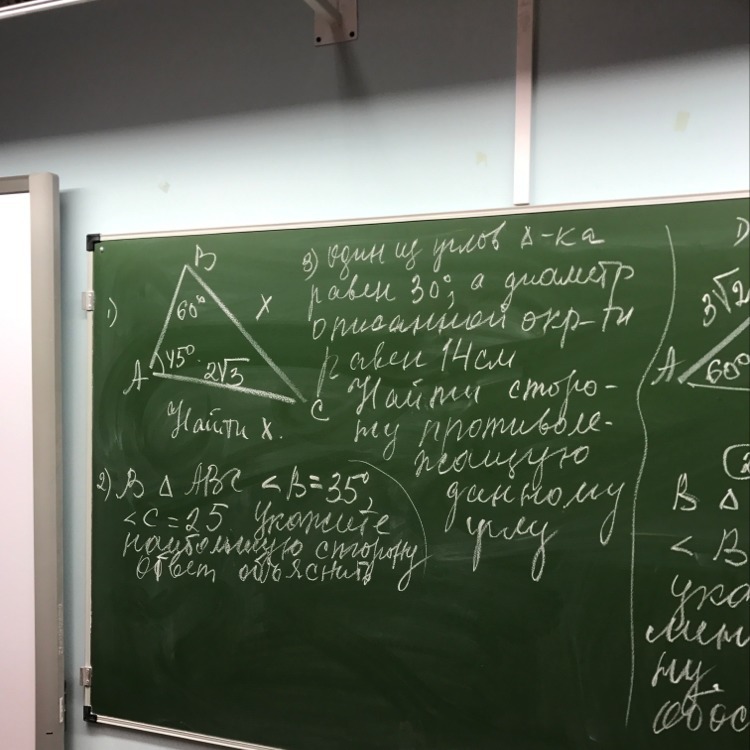 1)
B
60°
x
A
45°
2√3
C
Найти x.
2) В Δ ABC <B=35°,
<C=25 Укажите
наибольшую сторону
Ответ объяснить
3) Один из углов Δ-ка
равен 30°, а диаметр
описанной окр-ти
равен 14см
Найти сторо-
ну противоле-
жащую
данному
углу
1)
3√2
A
60°
2
В Δ
<B
ука
мен
ну.
обос